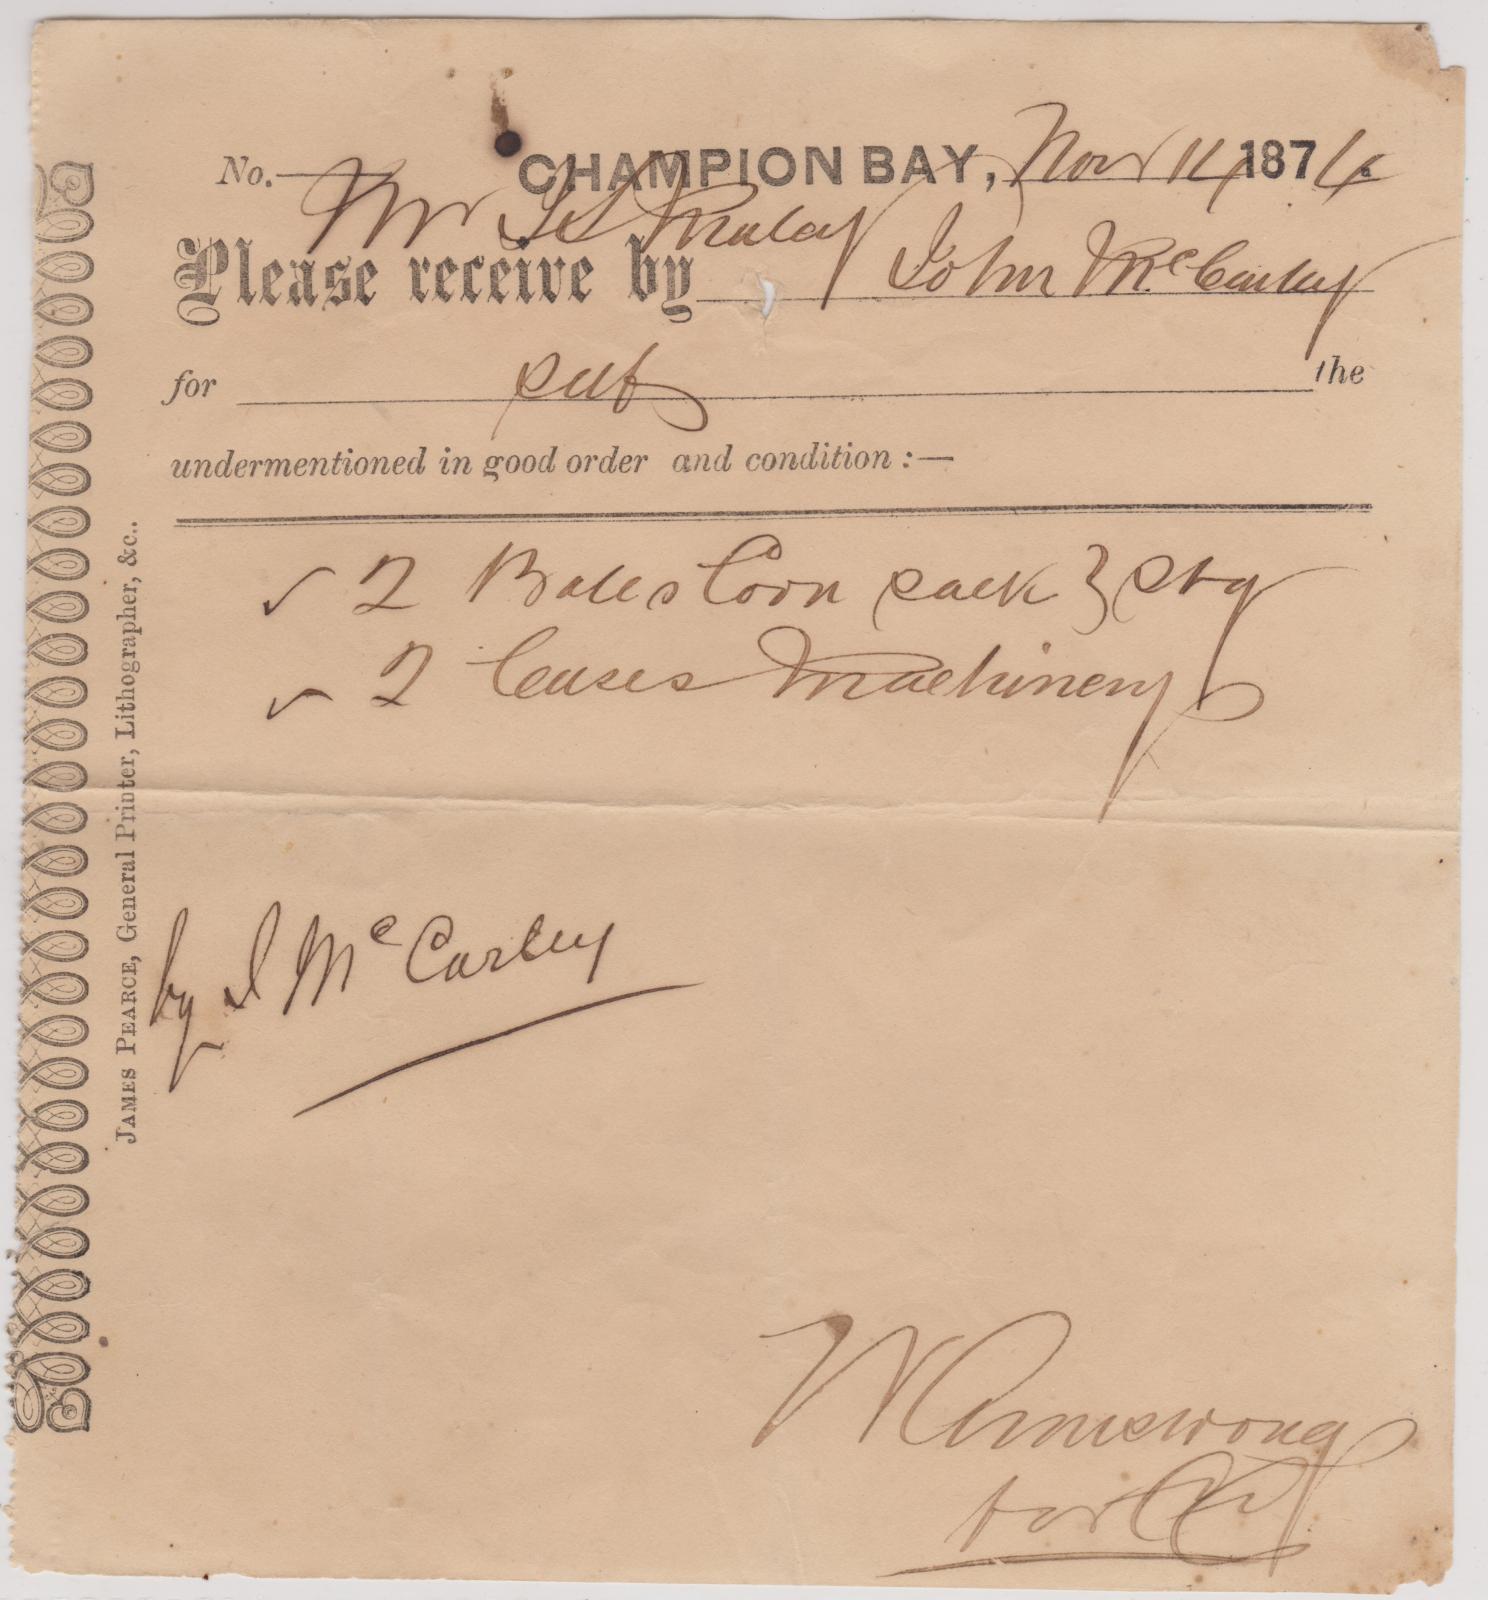 No. CHAMPION BAY, Nov 14 1874
Mr
Please receive by John McCarley
for self the
undermentioned in good order and condition :—
2 Bales Corn sack
2 Cases Machinery
by J McCarley
W Armstrong
for
JAMES PEARCE, General Printer, Lithographer, &c..